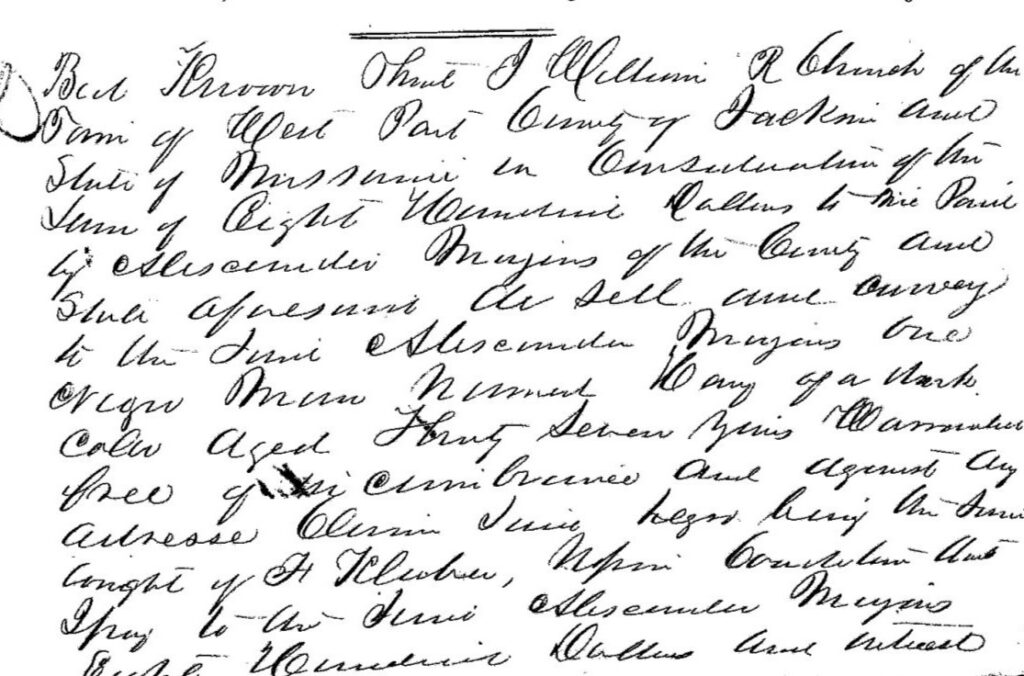 Be it Known that I William R Church of the
Town of West Port County of Jackson and
State of Missourie in Consideration of the
Sum of Eight Hundred Dollars to me Paid
by Alexcander Majors of the County and
State aforesaid do sell and convey
to the Same Alexcander Majors one
Negro Man Named Harry of a dark
Color aged Thirty Seven years Warranted
free of incumbrance and against any
adverse Claim Same negro being the Same
bought of F Kluber, Upon Condition that
I pay to the Same Alexcander Majors
Eight Hundred Dollars and interest